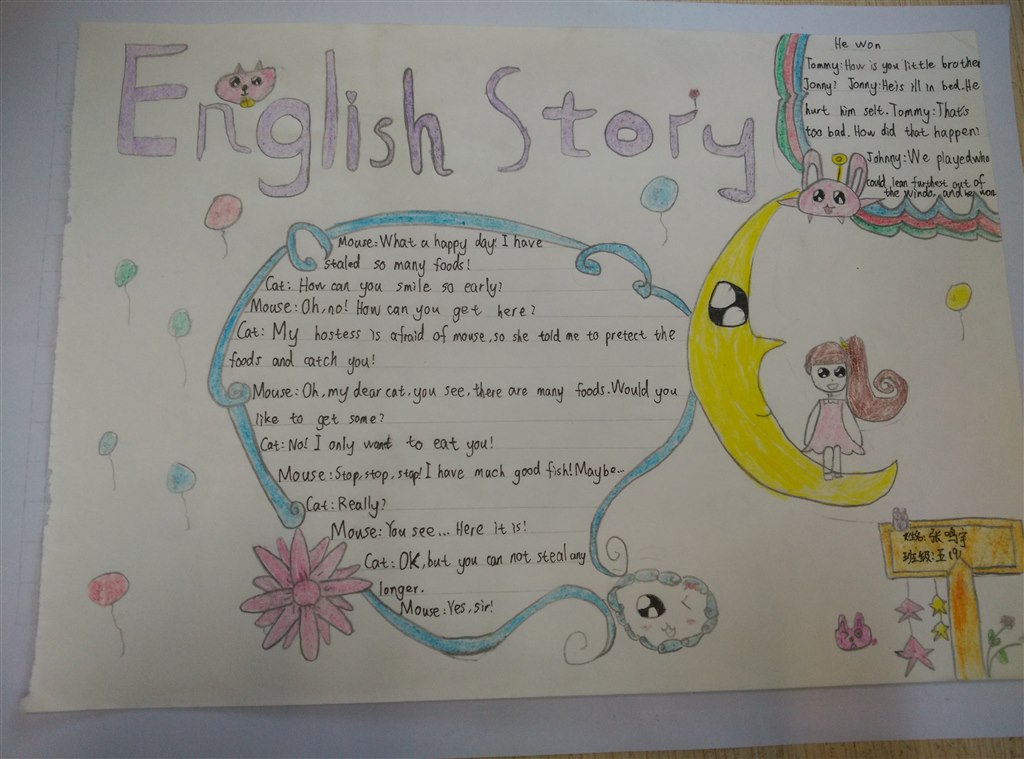 English Story
He won
Tommy:How is you little brothe
Jonny? Jonny:He is ill in bed.He
hurt him selt. Tommy:That's
too bad. How did that happen?
Johnny:We played who
could lean furthest out of
the windo. and he won.
Mouse:What a happy day! I have
staled so many foods!
Cat: How can you smile so early?
Mouse:Oh,no! How can you get here?
Cat: My hostess is afraid of mouse,so she told me to pretect the
foods and catch you!
Mouse:Oh,my dear cat,you see,there are many foods.Would you
like to get some?
Cat:No! I only want to eat you!
Mouse:Stop,stop,stop! I have much good fish! Maybe...
Cat:Really?
Mouse:You see... Here it is!
Cat: OK,but you can not steal any
longer.
Mouse:Yes,sir!
姓名:张鸣宇
班级:五(9)